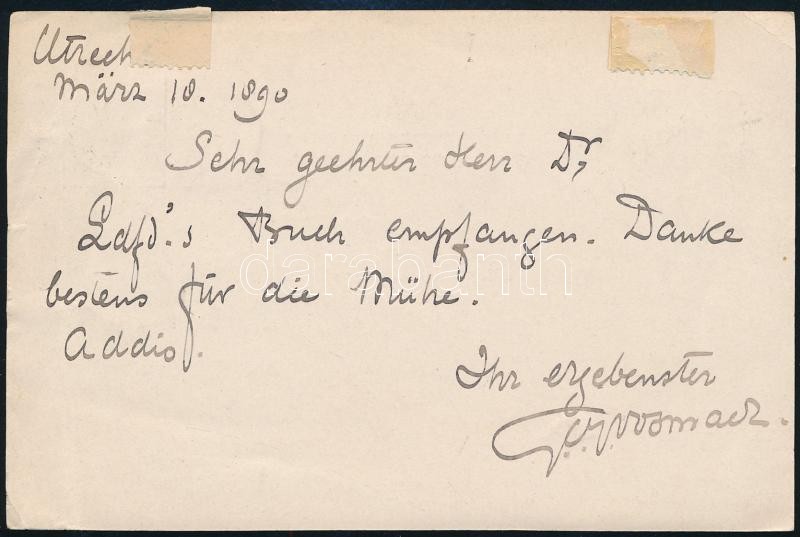 Utrech
März 18. 1890
Sehr geehrter Herr Dr,
Ldfd.'s Buch empfangen. Danke
bestens für die Mühe.
Addio.
Ihr ergebenster
G.C.J. Vosmaer.
darabanth